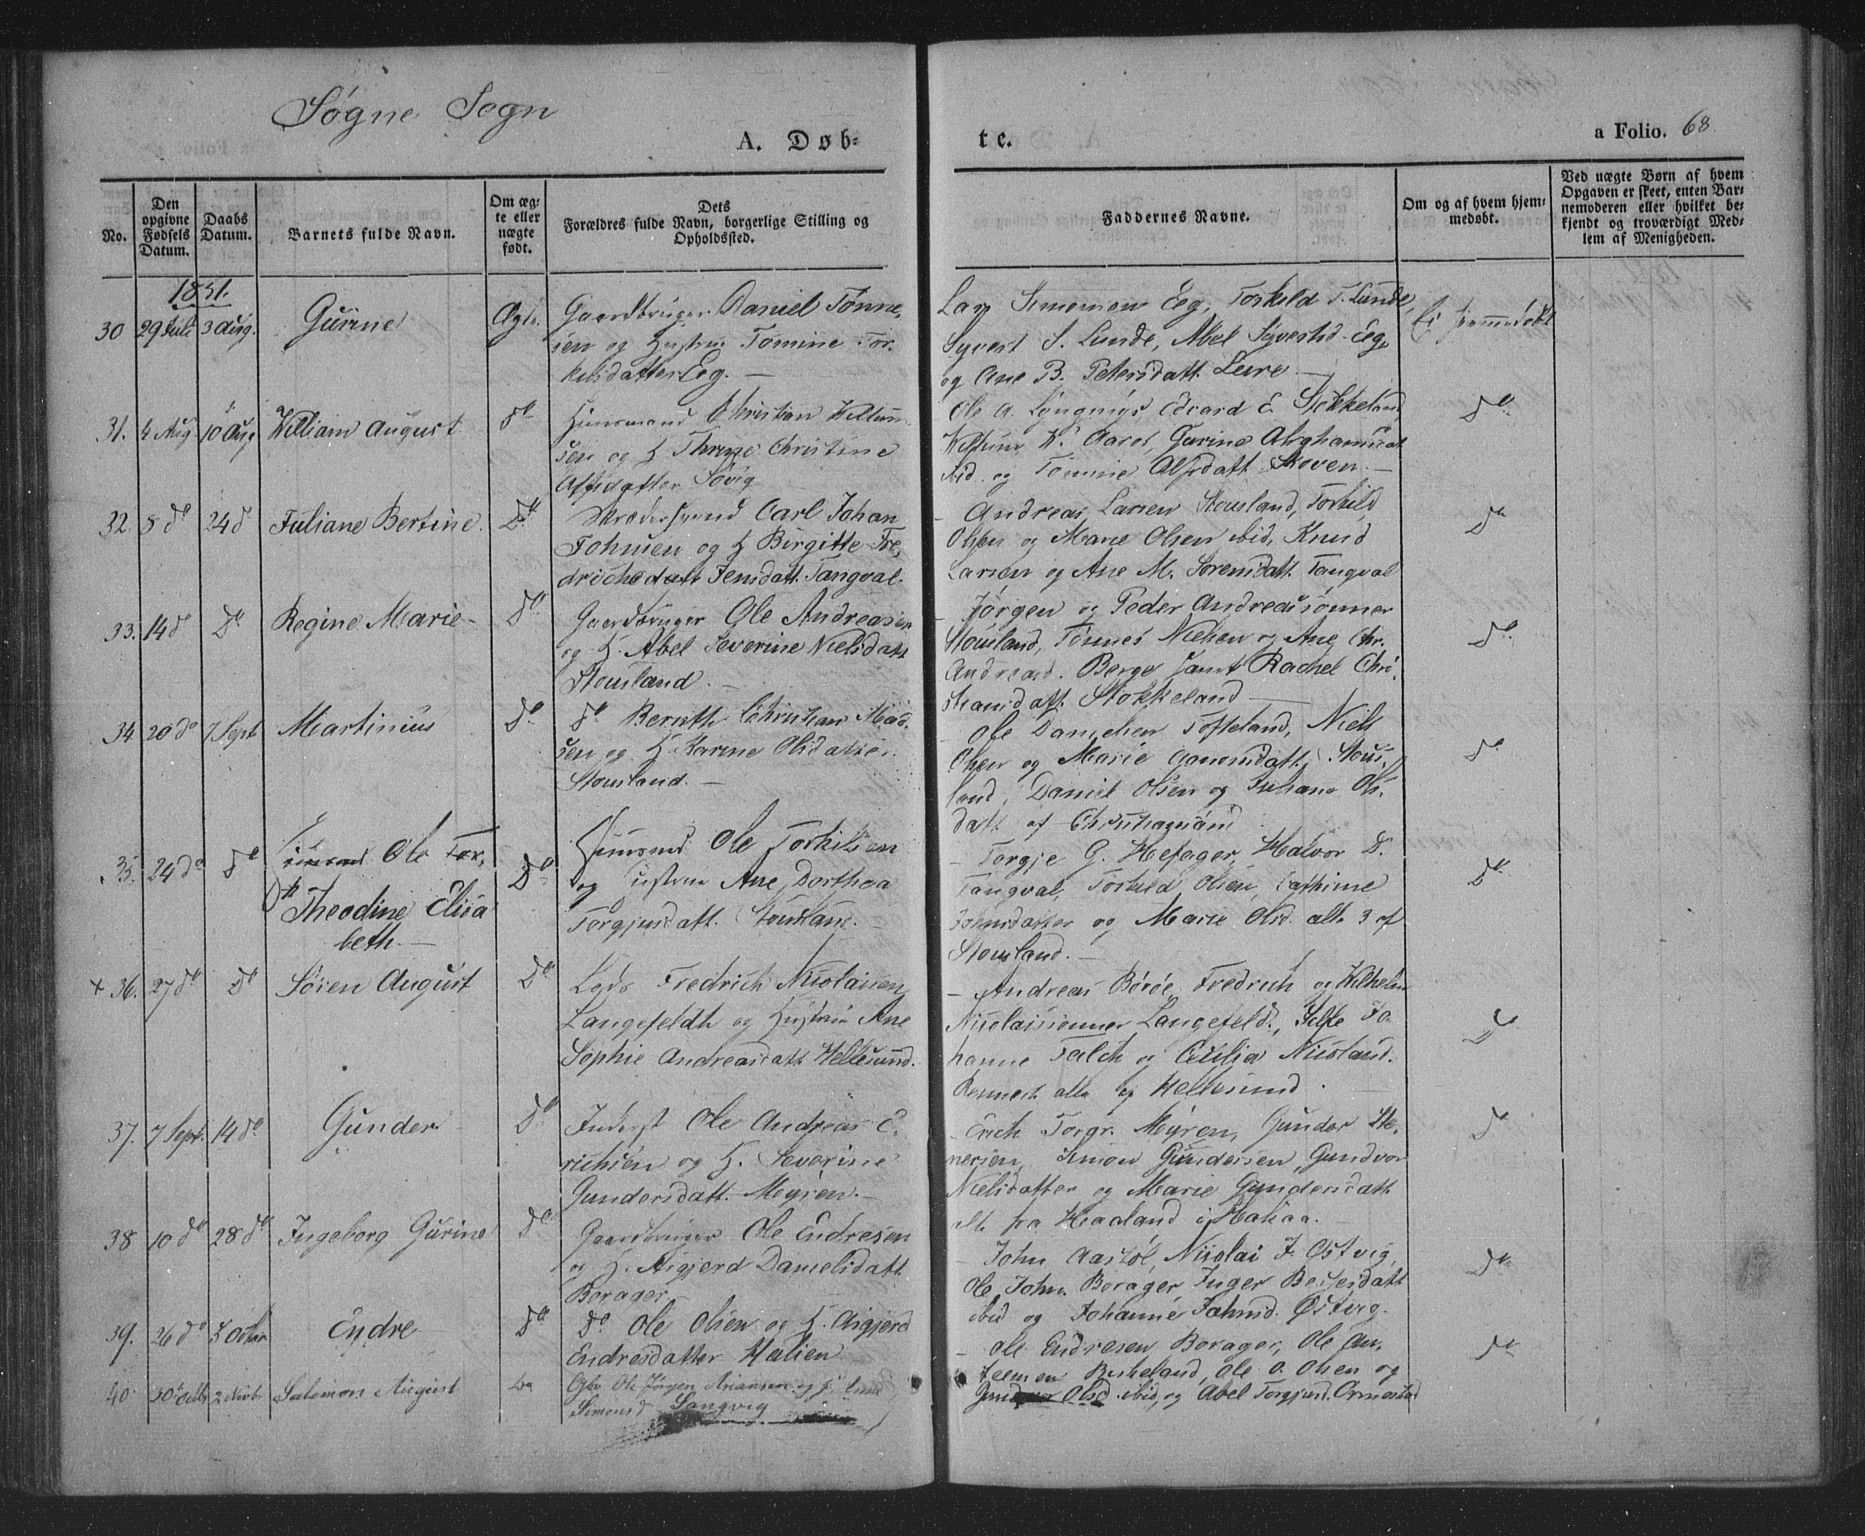 Søgne Sogn
A. Døb=
te.
a Folio. 68.
No.
Den opgivne Fødsels Datum.
Daabs Datum.
Barnets fulde Navn.
Om ægte eller nægte født.
Dets
Forældres fulde Navn, borgerlige Stilling og
Opholdssted.
Faddernes Navne.
Om og af hvem hjem=
medøbt.
Ved uægte Børn af hvem
Opgaven er skeet, enten Bar=
nemoderen eller hvilket be=
kjendt og troværdigt Med=
lem af Menigheden.
1851.
30 29 Juli 3 Aug. Gurine Ægte Gaardbruger Daniel Tønne,
sen og Hustrue Tomine Tor,
kelsdatter Eeg. —
Lars Simonsen Eeg, Torkild T. Lunde,
Syvert S. Lunde, Abel Syvertsd. Eeg,
og Ane B. Petersdatt. Leire —
Ei hjemmedøbt
31. 4 Aug 10 Aug William August do Huusmand Christian Willum
sen og H. Thrine Christine
Søvig
Ole A. Edvard E. Stokkeland
W. Aarøs, Gurine
ibid. og Tomine Olsdatt. Skoven. —
Do
32. 8 do 24 d Juliane Bertine. Do Skrædersvend Carl Johan
Johnsen og H Birgitte Fre,
Jensdatt. Tangval.
- Andreas Larsen Stousland, Torkild
Olsen og Marie Olsen ibid, Knud
Larsen og Ane M. Sørensdatt. Tangval
Do
33. 14 d Do Regine Marie — Do Gaardbruger Ole Andreasen
og H. Abel Severine Nielsdatt
Stousland. —
- Jørgen og Peder Andreassønner
Stousland, Tønnes Nielsen og Ane Chr.
Andreasd. Berge samt Rachel Chri,
stiansdatt. Stokkeland —
Do
34 20 do 7 Sept Martinius Do do Bernth Christian Mad
sen og H. Karine Olsdatter
Stousland. —
- Ole Danielsen Tofteland, Niels
Olsen og Marie Stous,
land, Daniel Olsen og Juliane Ols,
datt. af Christiansand
Do
35. 24 do do Ole Tor,
Theodine Elisa
beth. — Do Huusmd Ole Torkilsen
og Hustrue Ane Dorthea
Torgjusdatt. Stousland. —
- Torgje G. Halvor D.
Tangval, Torkild Olsen, Cathrine
Jensdatter og Marie Olsd. alle 3 af
Stousland. —
Do
+ 36. 27 do Do Søren August Do Lods Fredrich Nicolaisen
Langefeldt og Hustrue Ane
Sophie Andreasdatt. Hellesund.
- Andreas Børøe, Fredrich og Wilhelm
Nicolaisønner Langefeld,
hanne Falch og Cecilia
alle af Hellesund.
Do
37. 7 Sept. 14 do Gunder Do Inderst Ole Andreas E,
richsen og H. Severine
Gundersdatt. Myren. —
- Erich Torgr. Myren, Gunder Ste,
nersen, Simon Gundersen, Gundvor
Nielsdatter og Marie Gundersdatt.
alle fra Haaland i
Do
38 10 do 28 do Ingeborg Gurine Do Gaardbruger Ole Endresen
og H. Asgjerd Danielsdatt.
Borager
- John Aastøl, Nicolai J. Østvig,
Ole Johns. Borager, Inger
ibid og Johanne Johnsd. Østvig.
Do
39. 26 do 5 Octbr Endre Do do Ole Olsen og H. Asgjerd
Endresdatter Halsen.
- Ole Endresen Borager, Ole An,
Ole O. Olsen og
Olsd ibid, og Abel Torgjusd.
Do
40. 30 Octb 2 Novbr Salomon August Do Ole Jørgen
Simonsd Langvig